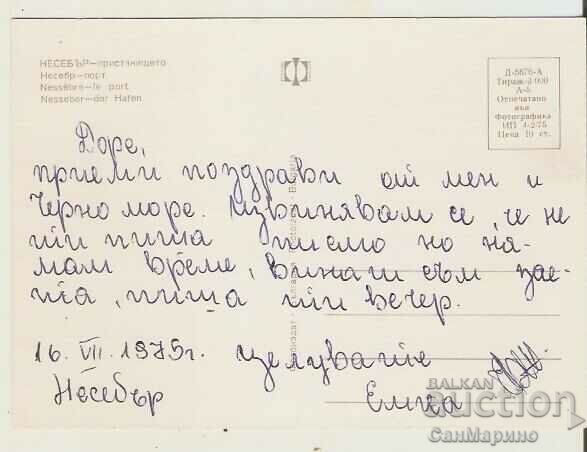 НЕСЕБЪР—пристанището
Несебр—порт
Nessebre—le port
Nesseber—der Hafen
Д-5676-А
Тираж
А-6
Отпечатано
във
Фотографика
ИП 4-2-75
Цена 10 ст.
Доре,
приеми поздрави от мен и
Черно море. Извинявам се, че не
ти пиша писмо но ня-
мам време, винаги съм зае-
та, пиша ти вечер.
16. VII. 1975г. целувам те
Несебър Емка
BALKAN
auction
СанМарино